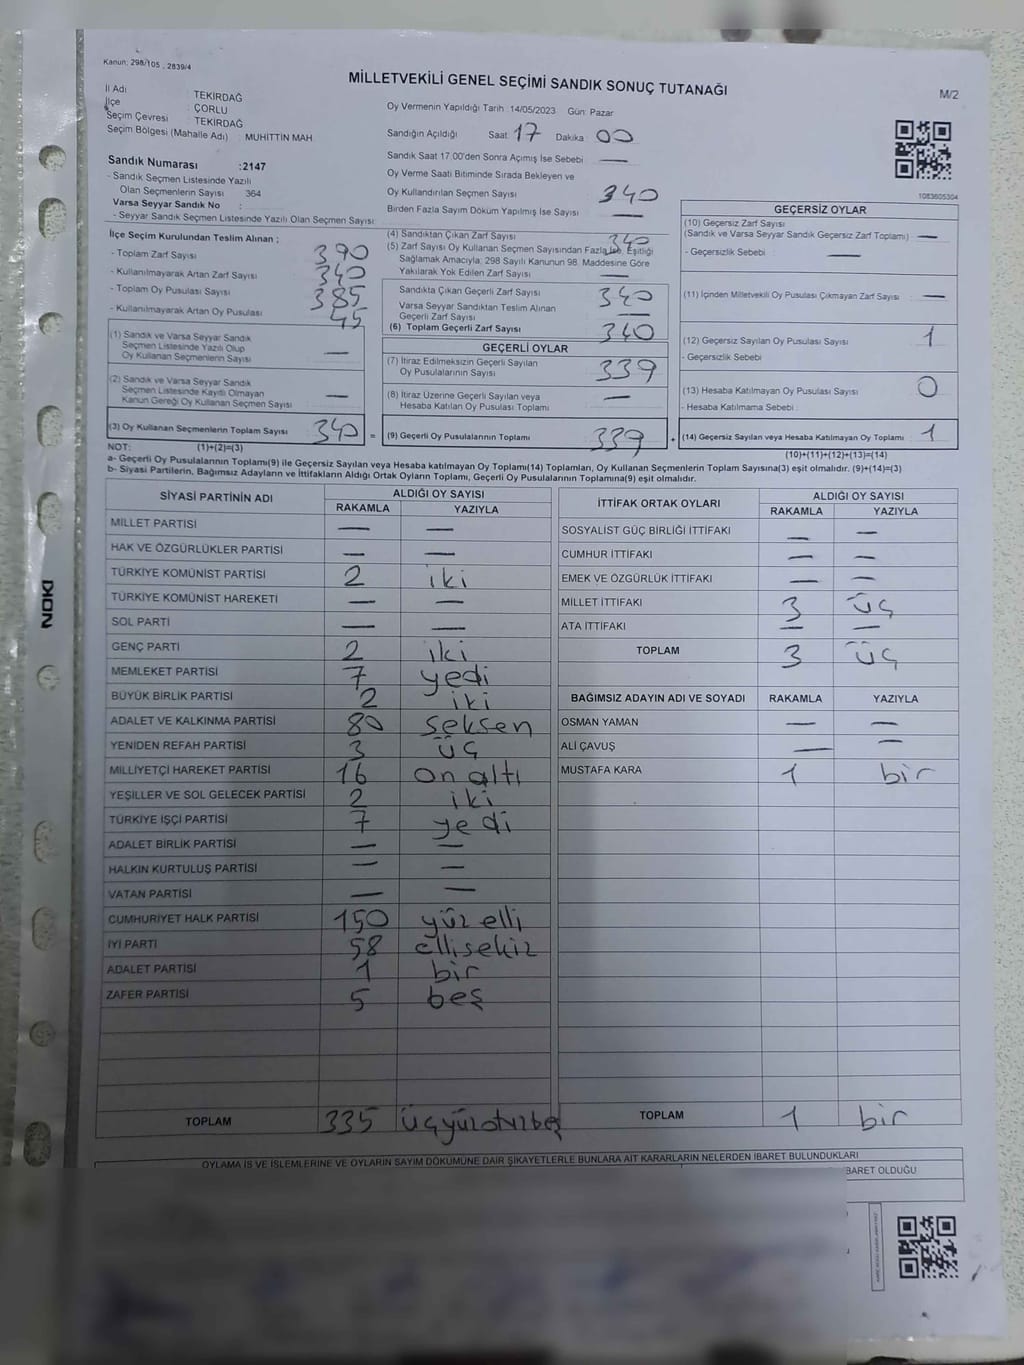 Kanun: 298/105 , 2839/4
MİLLETVEKİLİ GENEL SEÇİMİ SANDIK SONUÇ TUTANAĞI
M/2
İl Adı TEKİRDAĞ
İlçe ÇORLU
Seçim Çevresi TEKİRDAĞ
Seçim Bölgesi (Mahalle Adı) : MUHİTTİN MAH
Sandık Numarası :2147
- Sandık Seçmen Listesinde Yazılı
Olan Seçmenlerin Sayısı 364
Varsa Seyyar Sandık No :
- Seyyar Sandık Seçmen Listesinde Yazılı Olan Seçmen Sayısı:
Oy Vermenin Yapıldığı Tarih :14/05/2023 Gün: Pazar
Sandığın Açıldığı Saat 17 Dakika 00
Sandık Saat 17.00'den Sonra Açımış İse Sebebi —
Oy Verme Saati Bitiminde Sırada Bekleyen ve
Oy Kullandırılan Seçmen Sayısı 340
Birden Fazla Sayım Döküm Yapılmış İse Sayısı —
1083605304
İlçe Seçim Kurulundan Teslim Alınan ;
- Toplam Zarf Sayısı 390
- Kullanılmayarak Artan Zarf Sayısı 340
- Toplam Oy Pusulası Sayısı 385
- Kullanılmayarak Artan Oy Pusulası 45
(1) Sandık ve Varsa Seyyar Sandık
Seçmen Listesinde Yazılı Olup
Oy Kullanan Seçmenlerin Sayısı —
(2) Sandık ve Varsa Seyyar Sandık
Seçmen Listesinde Kayıtlı Olmayan
Kanun Gereği Oy Kullanan Seçmen Sayısı —
(3) Oy Kullanan Seçmenlerin Toplam Sayısı 340 =
(4) Sandıktan Çıkan Zarf Sayısı 340
(5) Zarf Sayısı Oy Kullanan Seçmen Sayısından Fazla İse, Eşitliği
Sağlamak Amacıyla; 298 Sayılı Kanunun 98. Maddesine Göre
Yakılarak Yok Edilen Zarf Sayısı —
Sandıkta Çıkan Geçerli Zarf Sayısı 340
Varsa Seyyar Sandıktan Teslim Alınan
Geçerli Zarf Sayısı —
(6) Toplam Geçerli Zarf Sayısı 340
GEÇERLİ OYLAR
(7) İtiraz Edilmeksizin Geçerli Sayılan
Oy Pusulalarının Sayısı 339
(8) İtiraz Üzerine Geçerli Sayılan veya
Hesaba Katılan Oy Pusulası Toplamı —
(9) Geçerli Oy Pusulalarının Toplamı 339 +
GEÇERSİZ OYLAR
(10) Geçersiz Zarf Sayısı
(Sandık ve Varsa Seyyar Sandık Geçersiz Zarf Toplamı) —
- Geçersizlik Sebebi —
(11) İçinden Milletvekili Oy Pusulası Çıkmayan Zarf Sayısı —
(12) Geçersiz Sayılan Oy Pusulası Sayısı 1
- Geçersizlik Sebebi
(13) Hesaba Katılmayan Oy Pusulası Sayısı 0
- Hesaba Katılmama Sebebi
(14) Geçersiz Sayılan veya Hesaba Katılmayan Oy Toplamı 1
NOT: (1)+(2)=(3) (10)+(11)+(12)+(13)=(14)
a- Geçerli Oy Pusulalarının Toplamı(9) ile Geçersiz Sayılan veya Hesaba katılmayan Oy Toplamı(14) Toplamları, Oy Kullanan Seçmenlerin Toplam Sayısına(3) eşit olmalıdır. (9)+(14)=(3)
b- Siyasi Partilerin, Bağımsız Adayların ve İttifakların Aldığı Ortak Oyların Toplamı, Geçerli Oy Pusulalarının Toplamına(9) eşit olmalıdır.
SİYASİ PARTİNİN ADI ALDIĞI OY SAYISI
RAKAMLA YAZIYLA
MİLLET PARTİSİ — —
HAK VE ÖZGÜRLÜKLER PARTİSİ — —
TÜRKİYE KOMÜNİST PARTİSİ 2 iki
TÜRKİYE KOMÜNİST HAREKETİ — —
SOL PARTİ — —
GENÇ PARTİ 2 iki
MEMLEKET PARTİSİ 7 yedi
BÜYÜK BİRLİK PARTİSİ 2 iki
ADALET VE KALKINMA PARTİSİ 80 seksen
YENİDEN REFAH PARTİSİ 3 üç
MİLLİYETÇİ HAREKET PARTİSİ 16 on altı
YEŞİLLER VE SOL GELECEK PARTİSİ 2 iki
TÜRKİYE İŞÇİ PARTİSİ 7 yedi
ADALET BİRLİK PARTİSİ — —
HALKIN KURTULUŞ PARTİSİ — —
VATAN PARTİSİ — —
CUMHURİYET HALK PARTİSİ 150 yüz elli
İYİ PARTİ 58 ellisekiz
ADALET PARTİSİ 1 bir
ZAFER PARTİSİ 5 beş
TOPLAM 335 üçyüzotuzbeş
İTTİFAK ORTAK OYLARI ALDIĞI OY SAYISI
RAKAMLA YAZIYLA
SOSYALİST GÜÇ BİRLİĞİ İTTİFAKI — —
CUMHUR İTTİFAKI — —
EMEK VE ÖZGÜRLÜK İTTİFAKI — —
MİLLET İTTİFAKI 3 üç
ATA İTTİFAKI — —
TOPLAM 3 üç
BAĞIMSIZ ADAYIN ADI VE SOYADI RAKAMLA YAZIYLA
OSMAN YAMAN — —
ALİ ÇAVUŞ — —
MUSTAFA KARA 1 bir
TOPLAM 1 bir
OYLAMA İŞ VE İŞLEMLERİNE VE OYLARIN SAYIM DÖKÜMÜNE DAİR ŞİKAYETLERLE BUNLARA AİT KARARLARIN NELERDEN İBARET BULUNDUKLARI
BARET OLDUĞU
NOKI